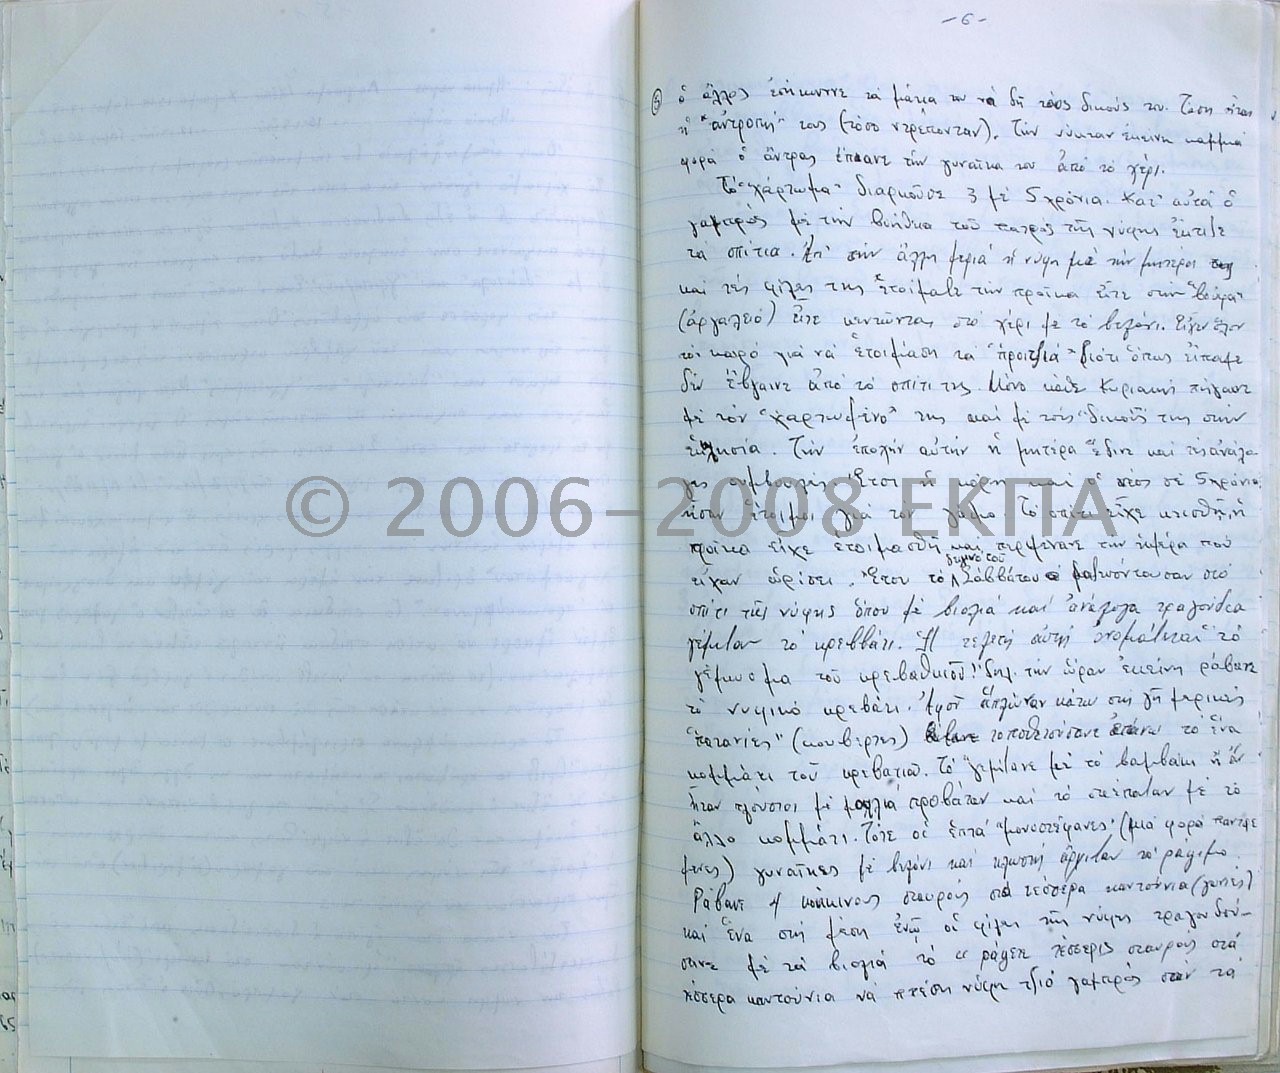 -6-
ὁ ἄλλος ἐσήκωνε τὰ μάτια του νὰ δῆ τοὺς δικούς του. Τόση ἦταν
ἡ "ἀντροπή" τους (τόσο ντρέπονταν). Τὴν νύκταν ἐκείνη καμμιὰ
φορὰ ὁ ἄντρας ἔπιανε τὴν γυναῖκα του ἀπὸ τὸ χέρι.
Τὸ "χάρτωμα" διαρκοῦσε 3 μὲ 5 χρόνια. Κατ' αὐτὰ ὁ
γαμπρὸς μὲ τὴν βοήθεια τοῦ πατρὸς τῆς νύφης ἔκτιζε
τὰ σπίτια. Ἀπ' τὴν ἄλλη μεριὰ ἡ νύφη μὲ τὴν μητέρα της
καὶ τὶς φίλες της ἑτοίμαζε τὴν προῖκα εἴτε στὴν "βούφα"
(ἀργαλειό) εἴτε κεντώντας στὸ χέρι μὲ τὸ βελόνι. Εἶχεν ὅλον
τὸν καιρό γιὰ νὰ ἑτοιμάση τὰ "προιτζιά" διότι ὅπως εἴπαμε
δὲν ἔβγαινε ἀπὸ τὸ σπίτι της. Μόνο κάθε Κυριακὴ πήγαινε
μὲ τὸν "χαρτωμένο" της καὶ μὲ τοὺς δικούς της στὴν
ἐκκλησία. Τὴν ἐποχὴν αὐτὴν ἡ μητέρα ἔδινε καὶ τὶς ἀνάλο-
γες συμβουλές. Ἔτσι ἡ κόρη καὶ ὁ νέος σὲ 5 χρόνια
ἦσαν ἕτοιμοι γιὰ τὸν γάμο. Τὸ σπίτι εἶχε κτισθῆ, ἡ
προῖκα εἶχε ἑτοιμασθῆ καὶ περιμένανε τὴν ἡμέρα ποὺ
εἶχαν ὁρίσει. Ἔτσι τὸ Σαββάτου μαζευόντουσαν στὸ
σπίτι τῆς νύφης ὅπου μὲ βιολιὰ καὶ ἀνάλογα τραγούδια
γέμιζαν τὸ κρεββάτι. Ἡ τελετὴ αὐτὴ ὀνομάζεται "τὸ
γέμωσμα τοῦ κρεβαθκιοῦ" δηλ. τὴν ὥραν ἐκείνη ράβανε
τὸ νυφικὸ κρεβάτι. Ἀφοῦ ἁπλώναν κάτω στὴ γῆ μερικὲς
"πατανίες" (κουβέρτες) τοποθετούσανε ἐπάνω τὸ ἕνα
κομμάτι τοῦ κρεβατιοῦ. Τὸ γεμίζανε μὲ τὸ βαμβάκι ἢ ἂν
ἦταν πλούσιοι μὲ μαλλιὰ προβάτων καὶ τὸ σκέπαζαν μὲ τὸ
ἄλλο κομμάτι. Τότε οἱ ἑπτὰ "μονοστέφανες" (μιὰ φορὰ παντρε
μένες) γυναῖκες μὲ βελόνι καὶ κλωστὴ ἄρχιζαν τὸ ράψιμο.
Ράβανε 4 κόκκινους σταυροὺς στὰ τέσσερα καντούνια (γωνιές)
καὶ ἕνα στὴ μέση ἐνῶ οἱ φίλες τῆς νύφης τραγουδού-
σανε μὲ τὰ βιολιὰ τὸ "ράψετε τέσσερις σταυροὺς στὰ
τέσσερα καντούνια νὰ πέση νύφη τζιὸ γαμπρὸς σὰν τὰ
© 2006-2008 ΕΚΠΑ